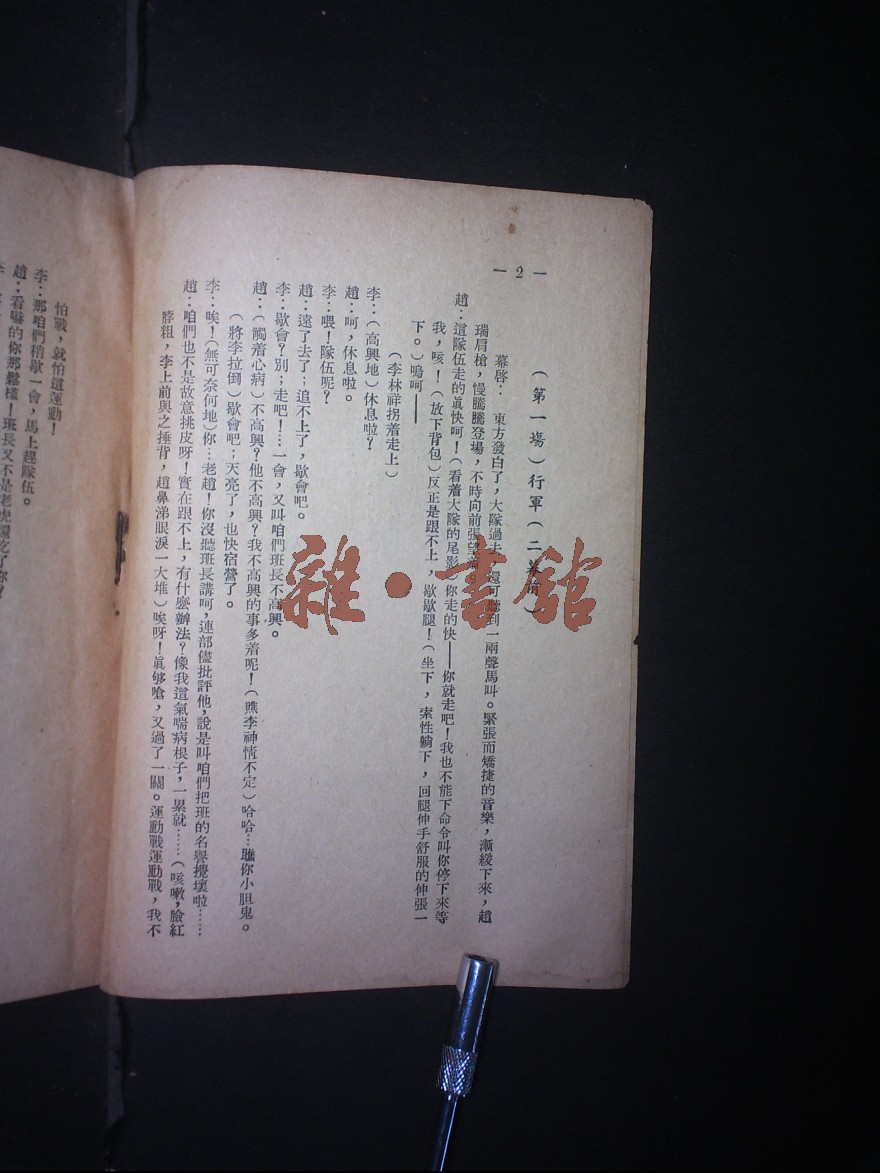 — 2 —
(第一場)行軍(二幕前)
幕啓： 東方發白了，大隊過去，還可聽到一兩聲馬叫。緊張而矯捷的音樂，漸緩下來，趙
瑞肩槍，慢騰騰登場，不時向前張望着
趙：這隊伍走的眞快呵！(看着大隊的尾影)你走的快——你就走吧！我也不能下命令叫你停下來等
我，咳！(放下背包)反正是跟不上，歇歇腿！(坐下，索性躺下，回腿伸手舒服的伸張一
下。)嗚呵——
(李林祥拐着走上)
李：(高興地)休息啦？
趙：呵，休息啦。
李：喂！隊伍呢？
趙：遠了去了；追不上了，歇會吧。
李：歇會？別；走吧！…一會，又叫咱們班長不高興。
趙：(觸着心病)不高興？他不高興？我不高興的事多着呢！(瞧李神情不定)哈哈…瞧你小胆鬼。
(將李拉倒)歇會吧；天亮了，也快宿營了。
李：唉！(無可奈何地)你…老趙！你沒聽班長講呵，連部儘批評他，說是叫咱們把班的名譽攪壞啦……
趙：咱們也不是故意挑皮呀！實在跟不上，有什麼辦法？像我這氣喘病根子，一累就……(咳嗽，臉紅
脖粗，李上前與之捶背，趙鼻涕眼淚一大堆)唉呀！眞够嗆，又過了一關。運動戰運動戰，我不
怕戰，就怕這運動！
李：那咱們稍歇一會，馬上趕隊伍。
趙：看嚇的你那鬆樣！班長又不是老虎還吃了你？
李
雜·書館